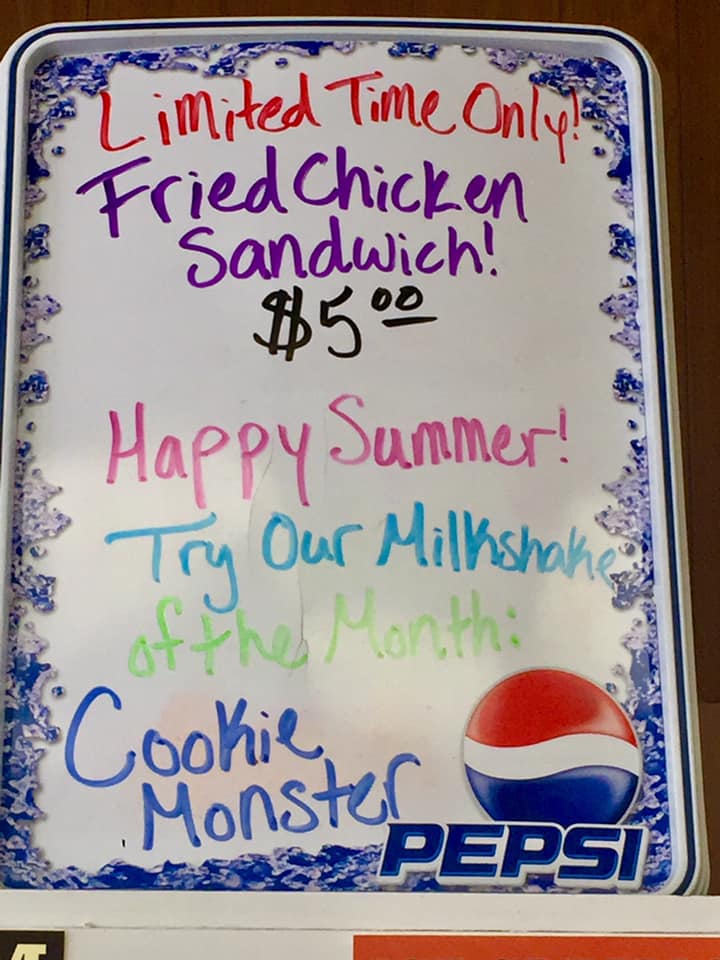 Limited Time Only!
Fried Chicken
Sandwich!
$5.00
Happy Summer!
Try Our Milkshake
of the Month:
Cookie
Monster
PEPSI